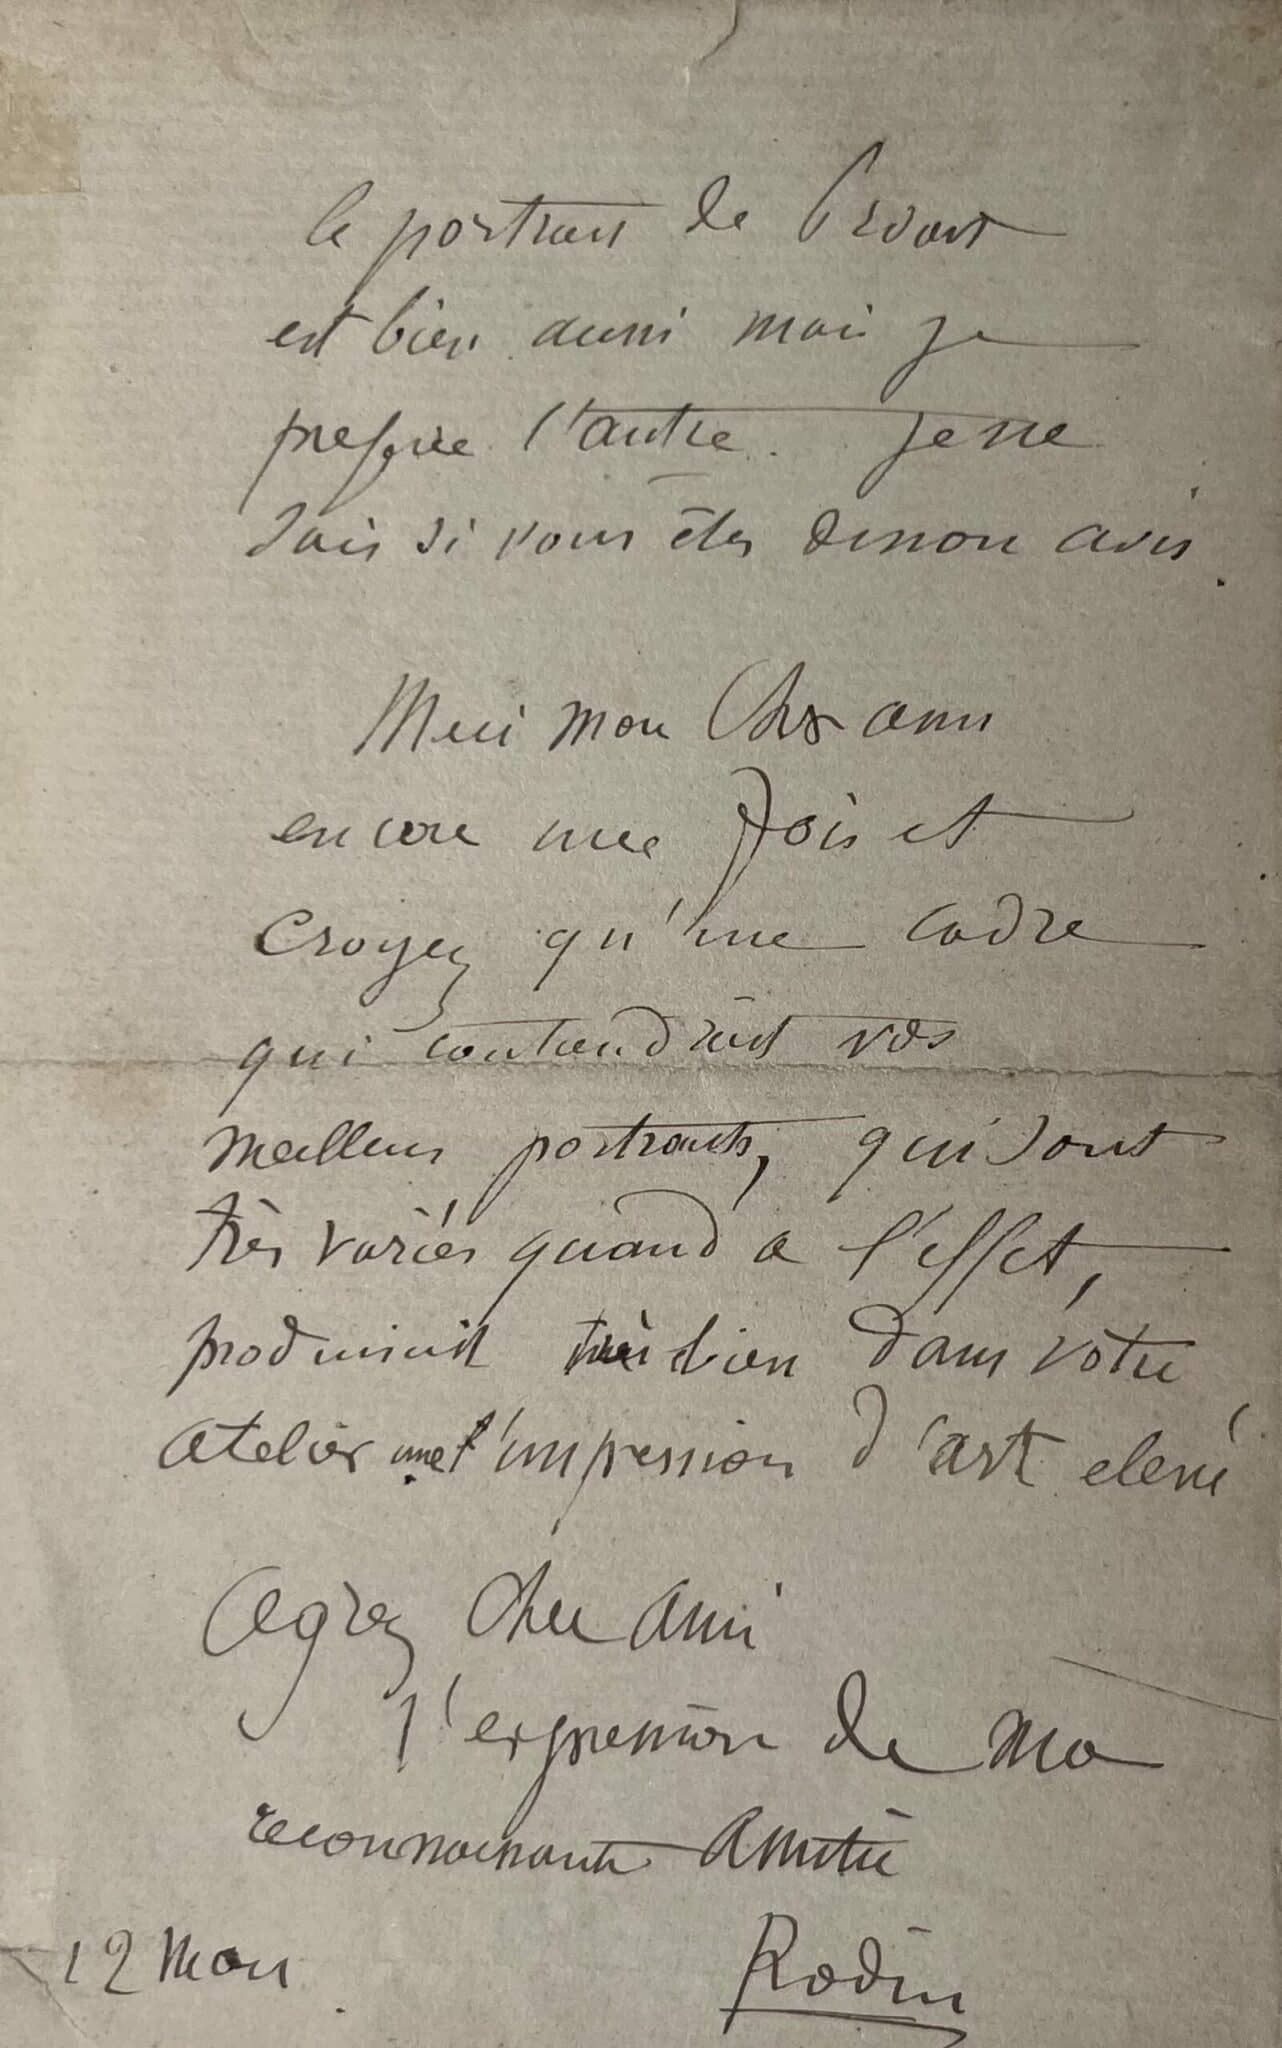 le portrait de
est bien aussi mais je
prefere l'autre. je ne
sais si vous êtes de mon avis.
Merci mon Cher ami
encore une fois et
croyez qu'une cadre
qui contiendrait vos
meilleurs portraits, qui sont
très variés quand a l'effet,
produirait très bien dans votre
atelier une l'impression d'art elevé
Agréez Cher ami
l'expression de ma
reconnaissante Amitié
12 Mars
Rodin